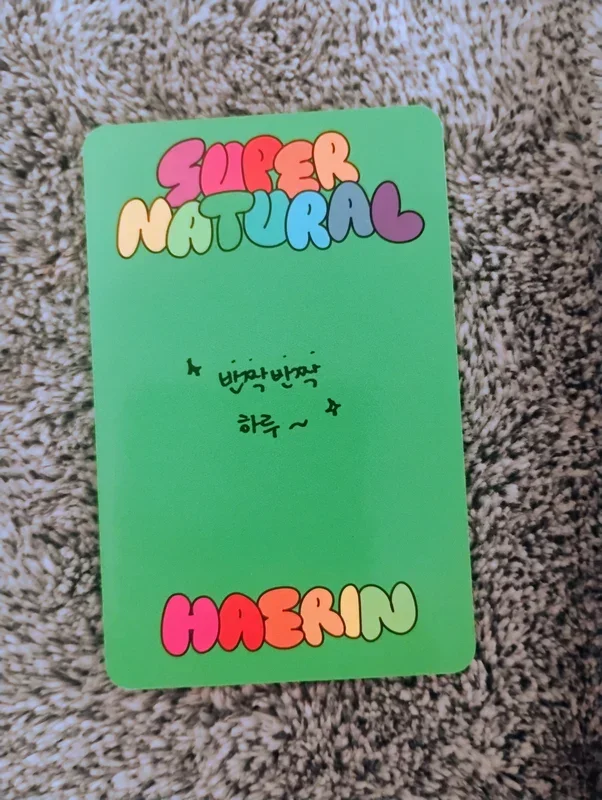 SUPER
NATURAL
☆ 반짝반짝
하루~ ☆
HAERIN